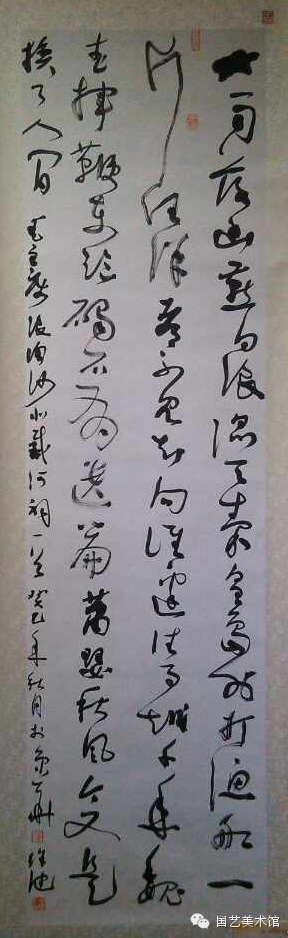 大雨落幽燕白浪滔天秦皇岛外打渔船一
片汪洋都不见知向谁边往事越千年魏
武挥鞭东临碣石有遗篇萧瑟秋风今又是
换了人间 毛主席浪淘沙北戴河词一首 癸巳年秋月于
国艺美术馆